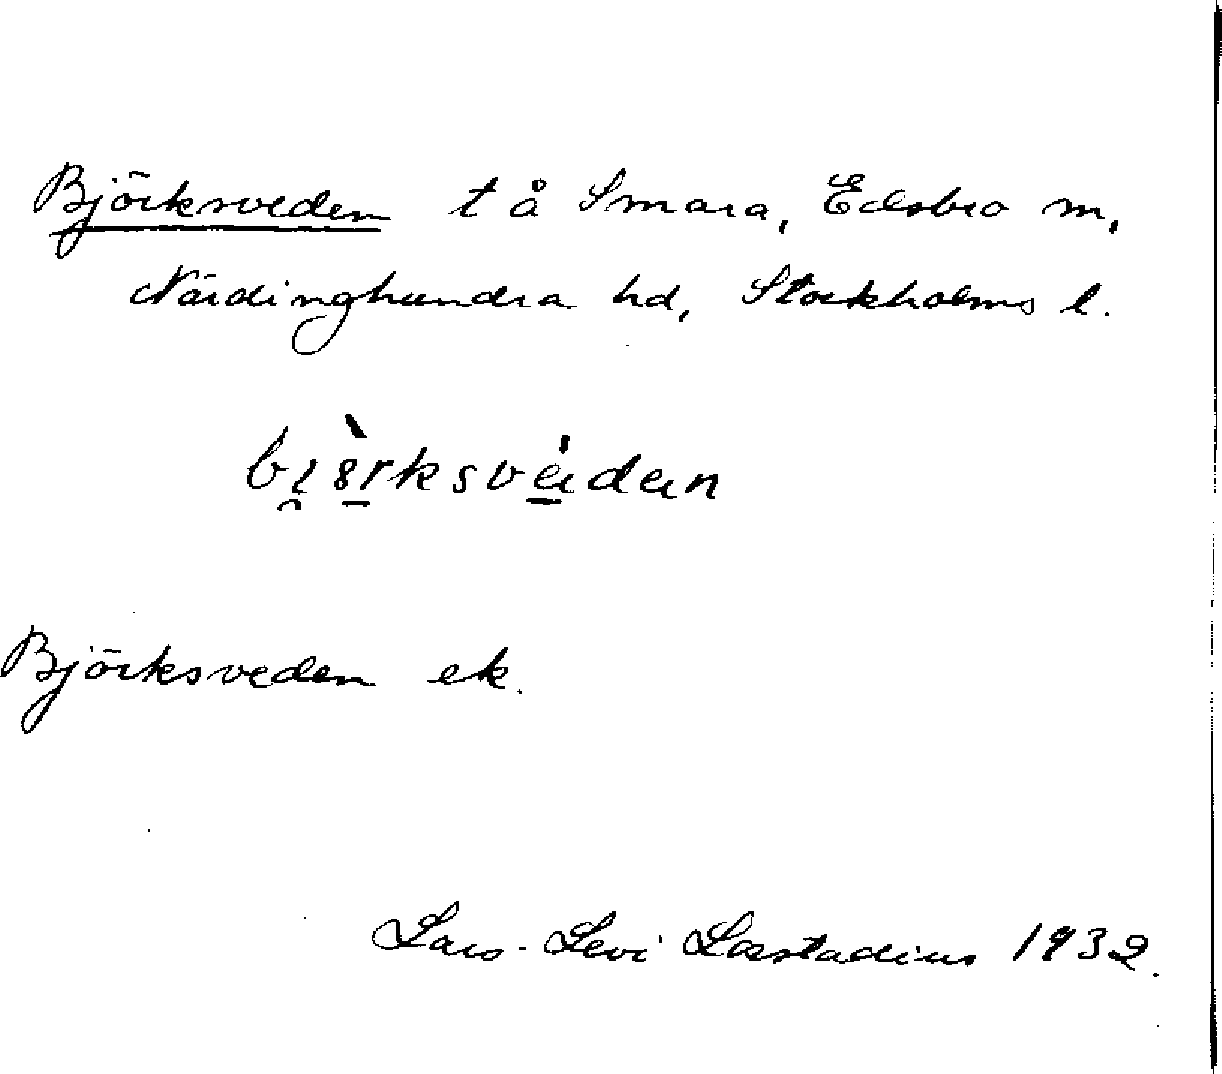 Björksveden t å Smara, Edsbro sn,
Närdinghundra hd, Stockholms l.
Björksveden ek.
Lars-Levi Læstadius 1932.